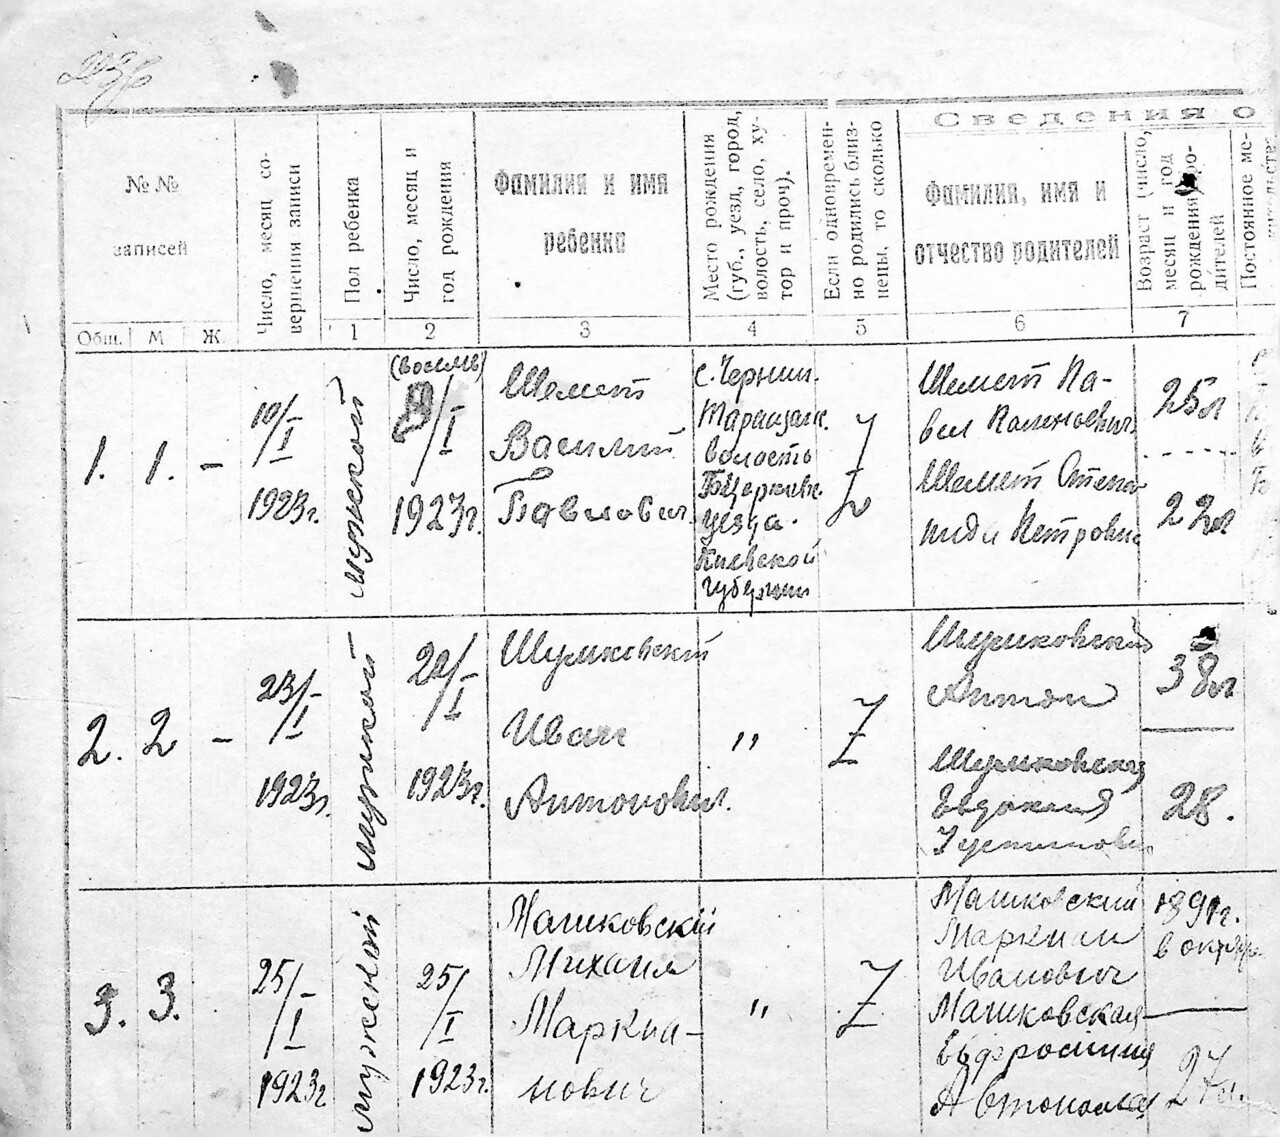 Сведения о
№ №
записей
Общ. М Ж.
Число, месяц со-
вершения записи
Пол ребенка
1
Число, месяц и
год рождения
2
Фамилия и имя
ребенка
3
Место рождения
(губ., уезд, город,
волость, село, ху-
тор и проч).
4
Если одновремен-
но родились близ-
нецы, то сколько
5
Фамилия, имя и
отчество родителей
6
Возраст (число,
месяц и год
рождения) ро-
дителей
7
Постоянное ме-
1. 1. –
10/I
1923г.
мужской
(восемь)
8/I
1923г.
Шемет
Василий
Павлович
с. Чернин.
Таращан.
волость
БЦерковн.
уезда.
Киевской
губернии
Z
Шемет Па-
вел
Шемет Степа
нида Петровна
25л
22л
2. 2 –
23/I
1923г.
мужской
20/I
1923г.
Шумковский
Иван
Антонович.
"
Z
Шумковский
Антон
Шумковская
Евдокия
38л
28.
3. 3.
25/I
1923г
мужской
25/I
1923г.
Машковскій
Михаил
Маркиа-
нович
"
Z
Машковский
Маркиан
Иванович
Машковская
Евфросиния
Автономов
1891г.
в октябре
27л.